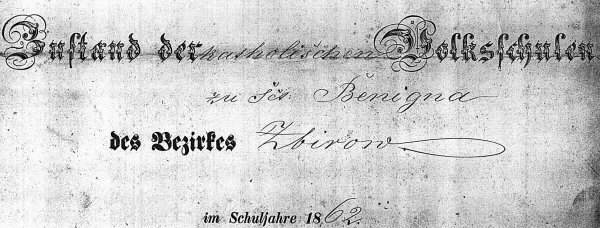 Zustand der katholischen Volksschulen
zu Sct. Benigna
des Bezirkes Zbirow
im Schuljahre 1862.